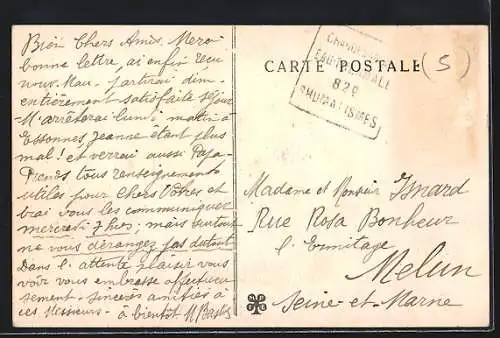 Bien Chers Amis. Merci
bonne lettre, ai enfin reçu
vous. Mau. partirai dim.
entièrement satisfaite séjour
M'arrêterai lundi matin à
Essonnes, Jeanne étant plus
mal! et verrai aussi Papa-
tous renseignements
utiles pour Chers Vôtres et
irai vous les communiquer
mercredi 7 hes; mais surtout
ne vous dérangez pas du tout
Dans l'attente plaisir vous
voir vous embrasse affectueu
sement. Sincères amitiés à
ces Messieurs. à bientôt. M
CARTE POSTALE
(5)
EAU THERMALE
82°
RHUMATISMES
Madame et Monsieur Isnard
Rue Rosa Bonheur
l'Ermitage
Melun
Seine-et-Marne